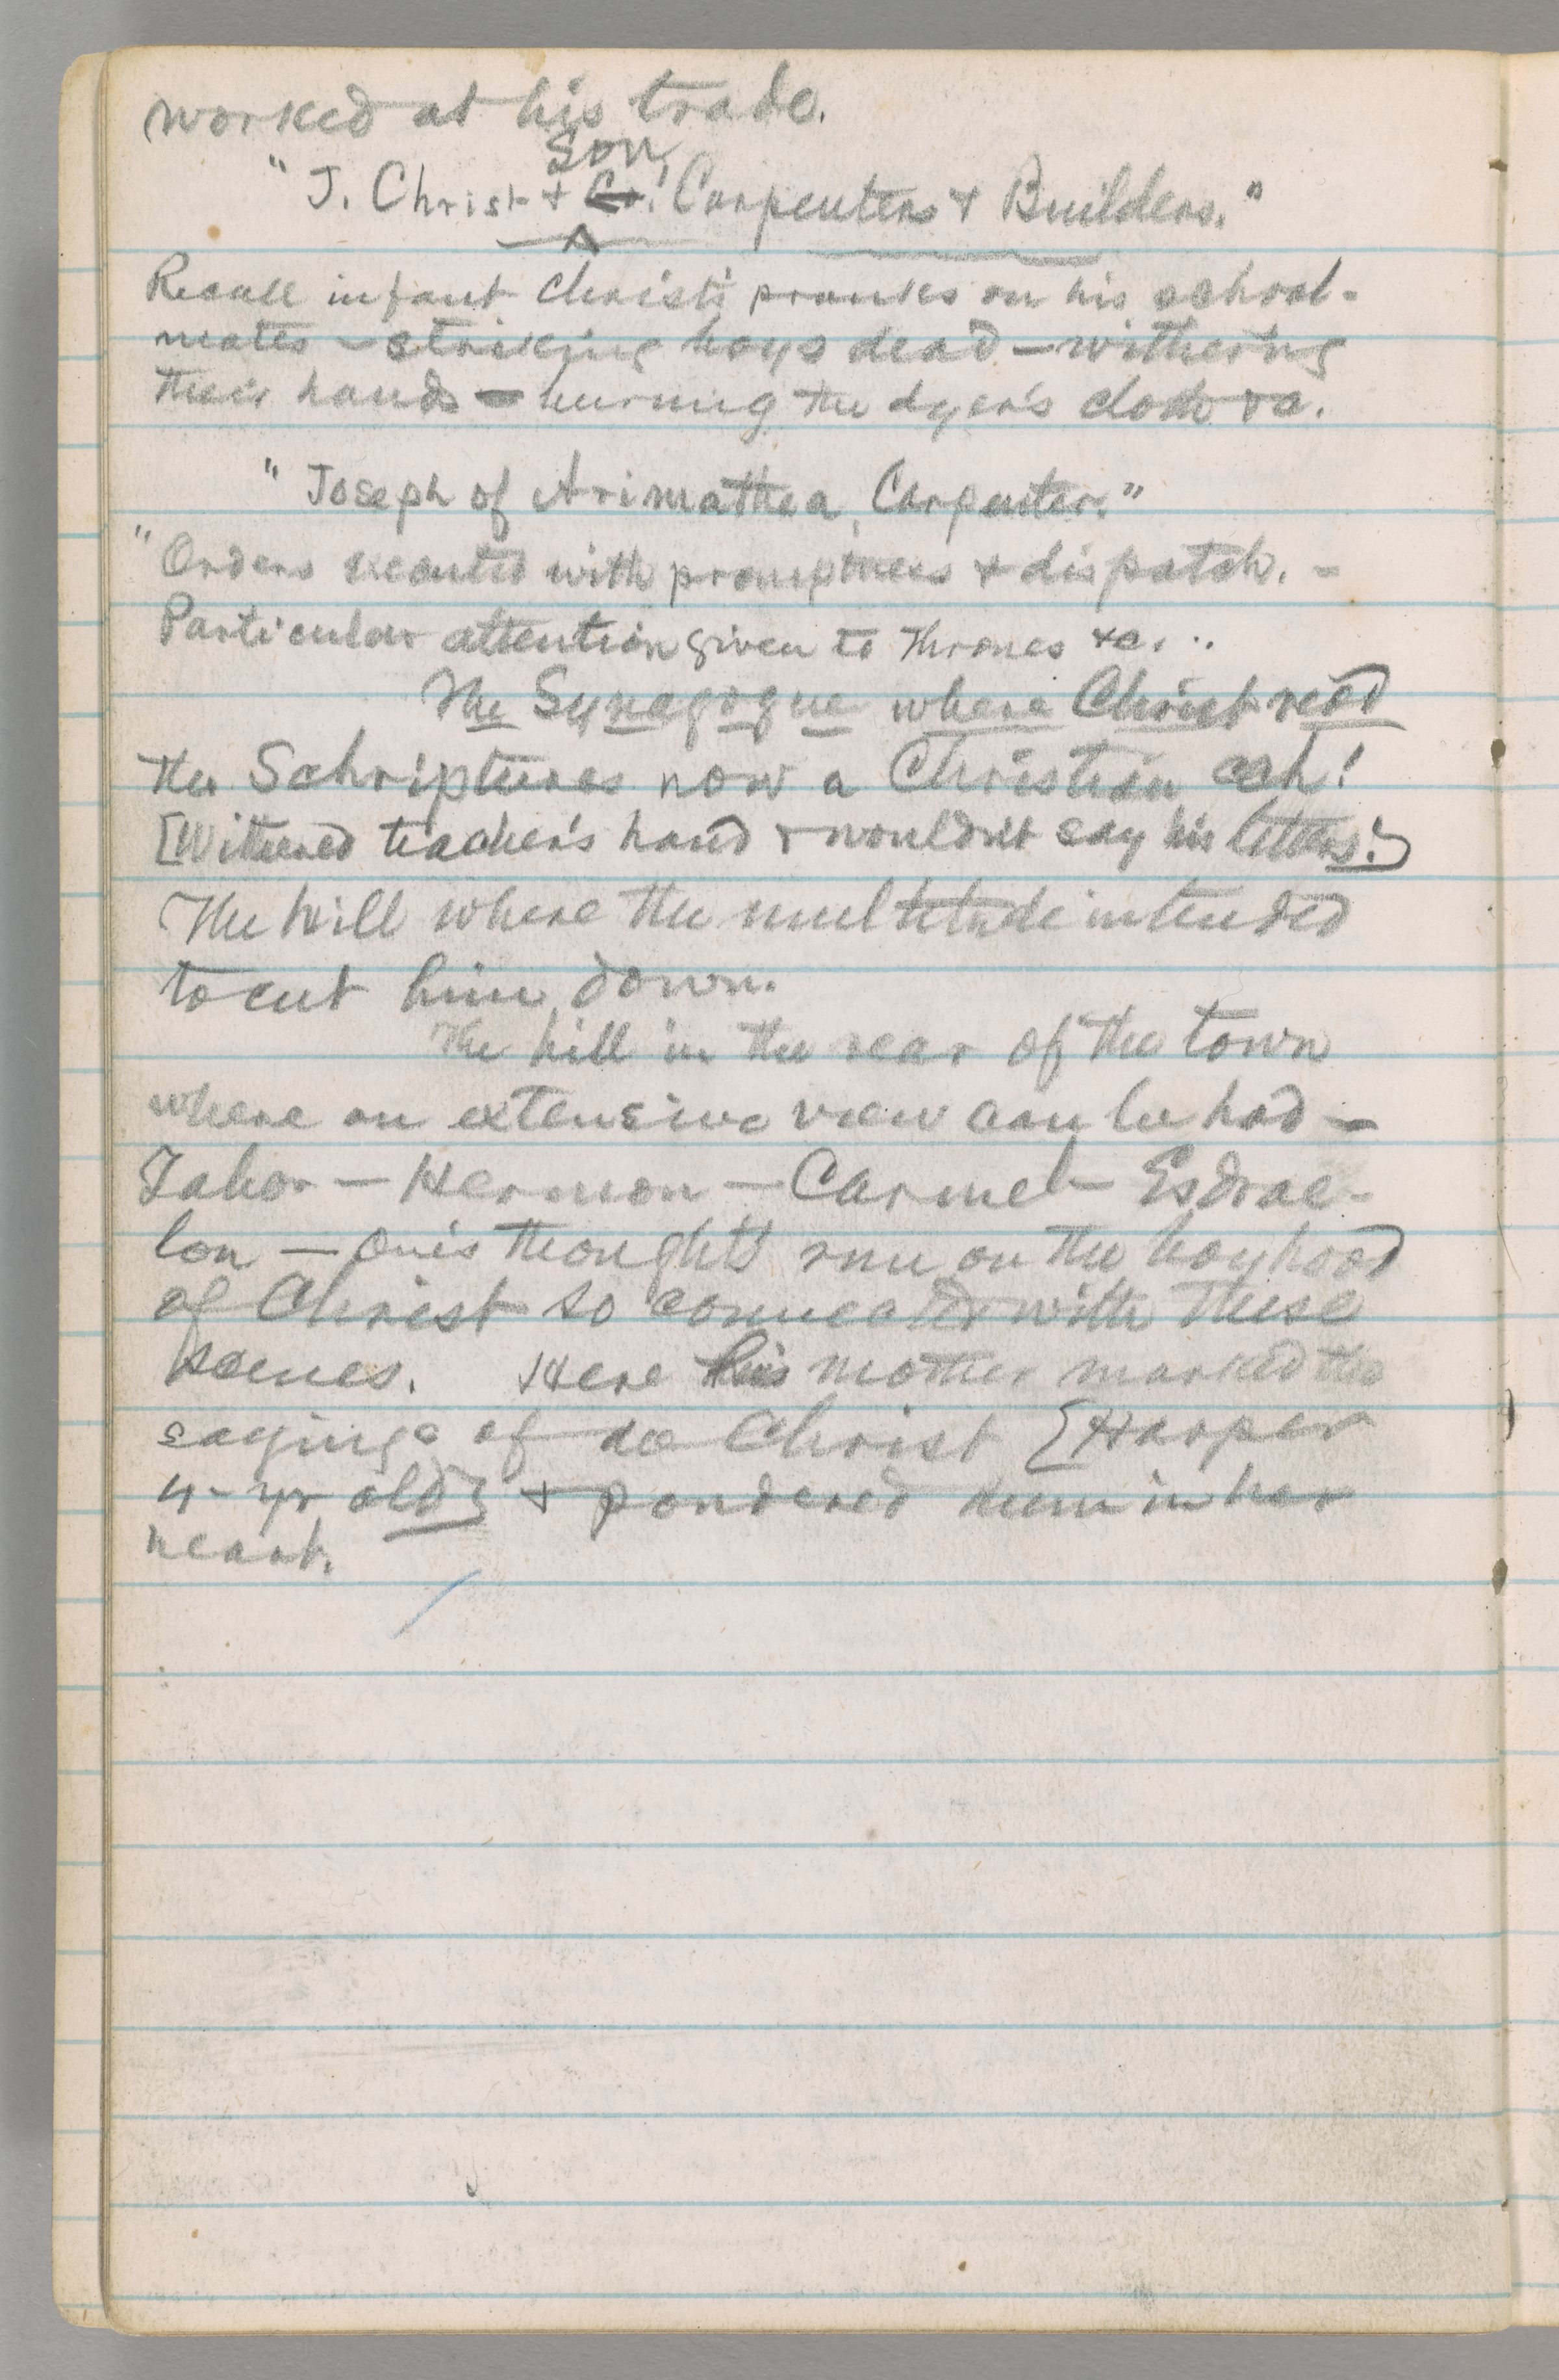 worked at his trade.
Son,
"J. Christ & Co. Carpenters & Builders."
Recall infant Christ's pranks on his school-
mates – striking boys dead – withering
their hands – burning the dyer's cloth &c.
"Joseph of Arimathea, Carpenter."
"Orders executed with promptness & dispatch. –
Particular attention given to Thrones &c. ..
The Synagogue where Christ read
the Schriptures now a Christian ch!
[Withered teacher's hand & wouldn't say his letters.]
The hill where the multitude intended
to cut him down.
The hill in the rear of the town
where an extensive view can be had –
Tabor – Hermon – Carmel – Esdrae-
lon – One's thoughts run on the boyhood
of Christ so connected with these
scenes. Here his mother marked the
sayings of de Christ [Harper
4-yr old] & pondered dem in her
heart.